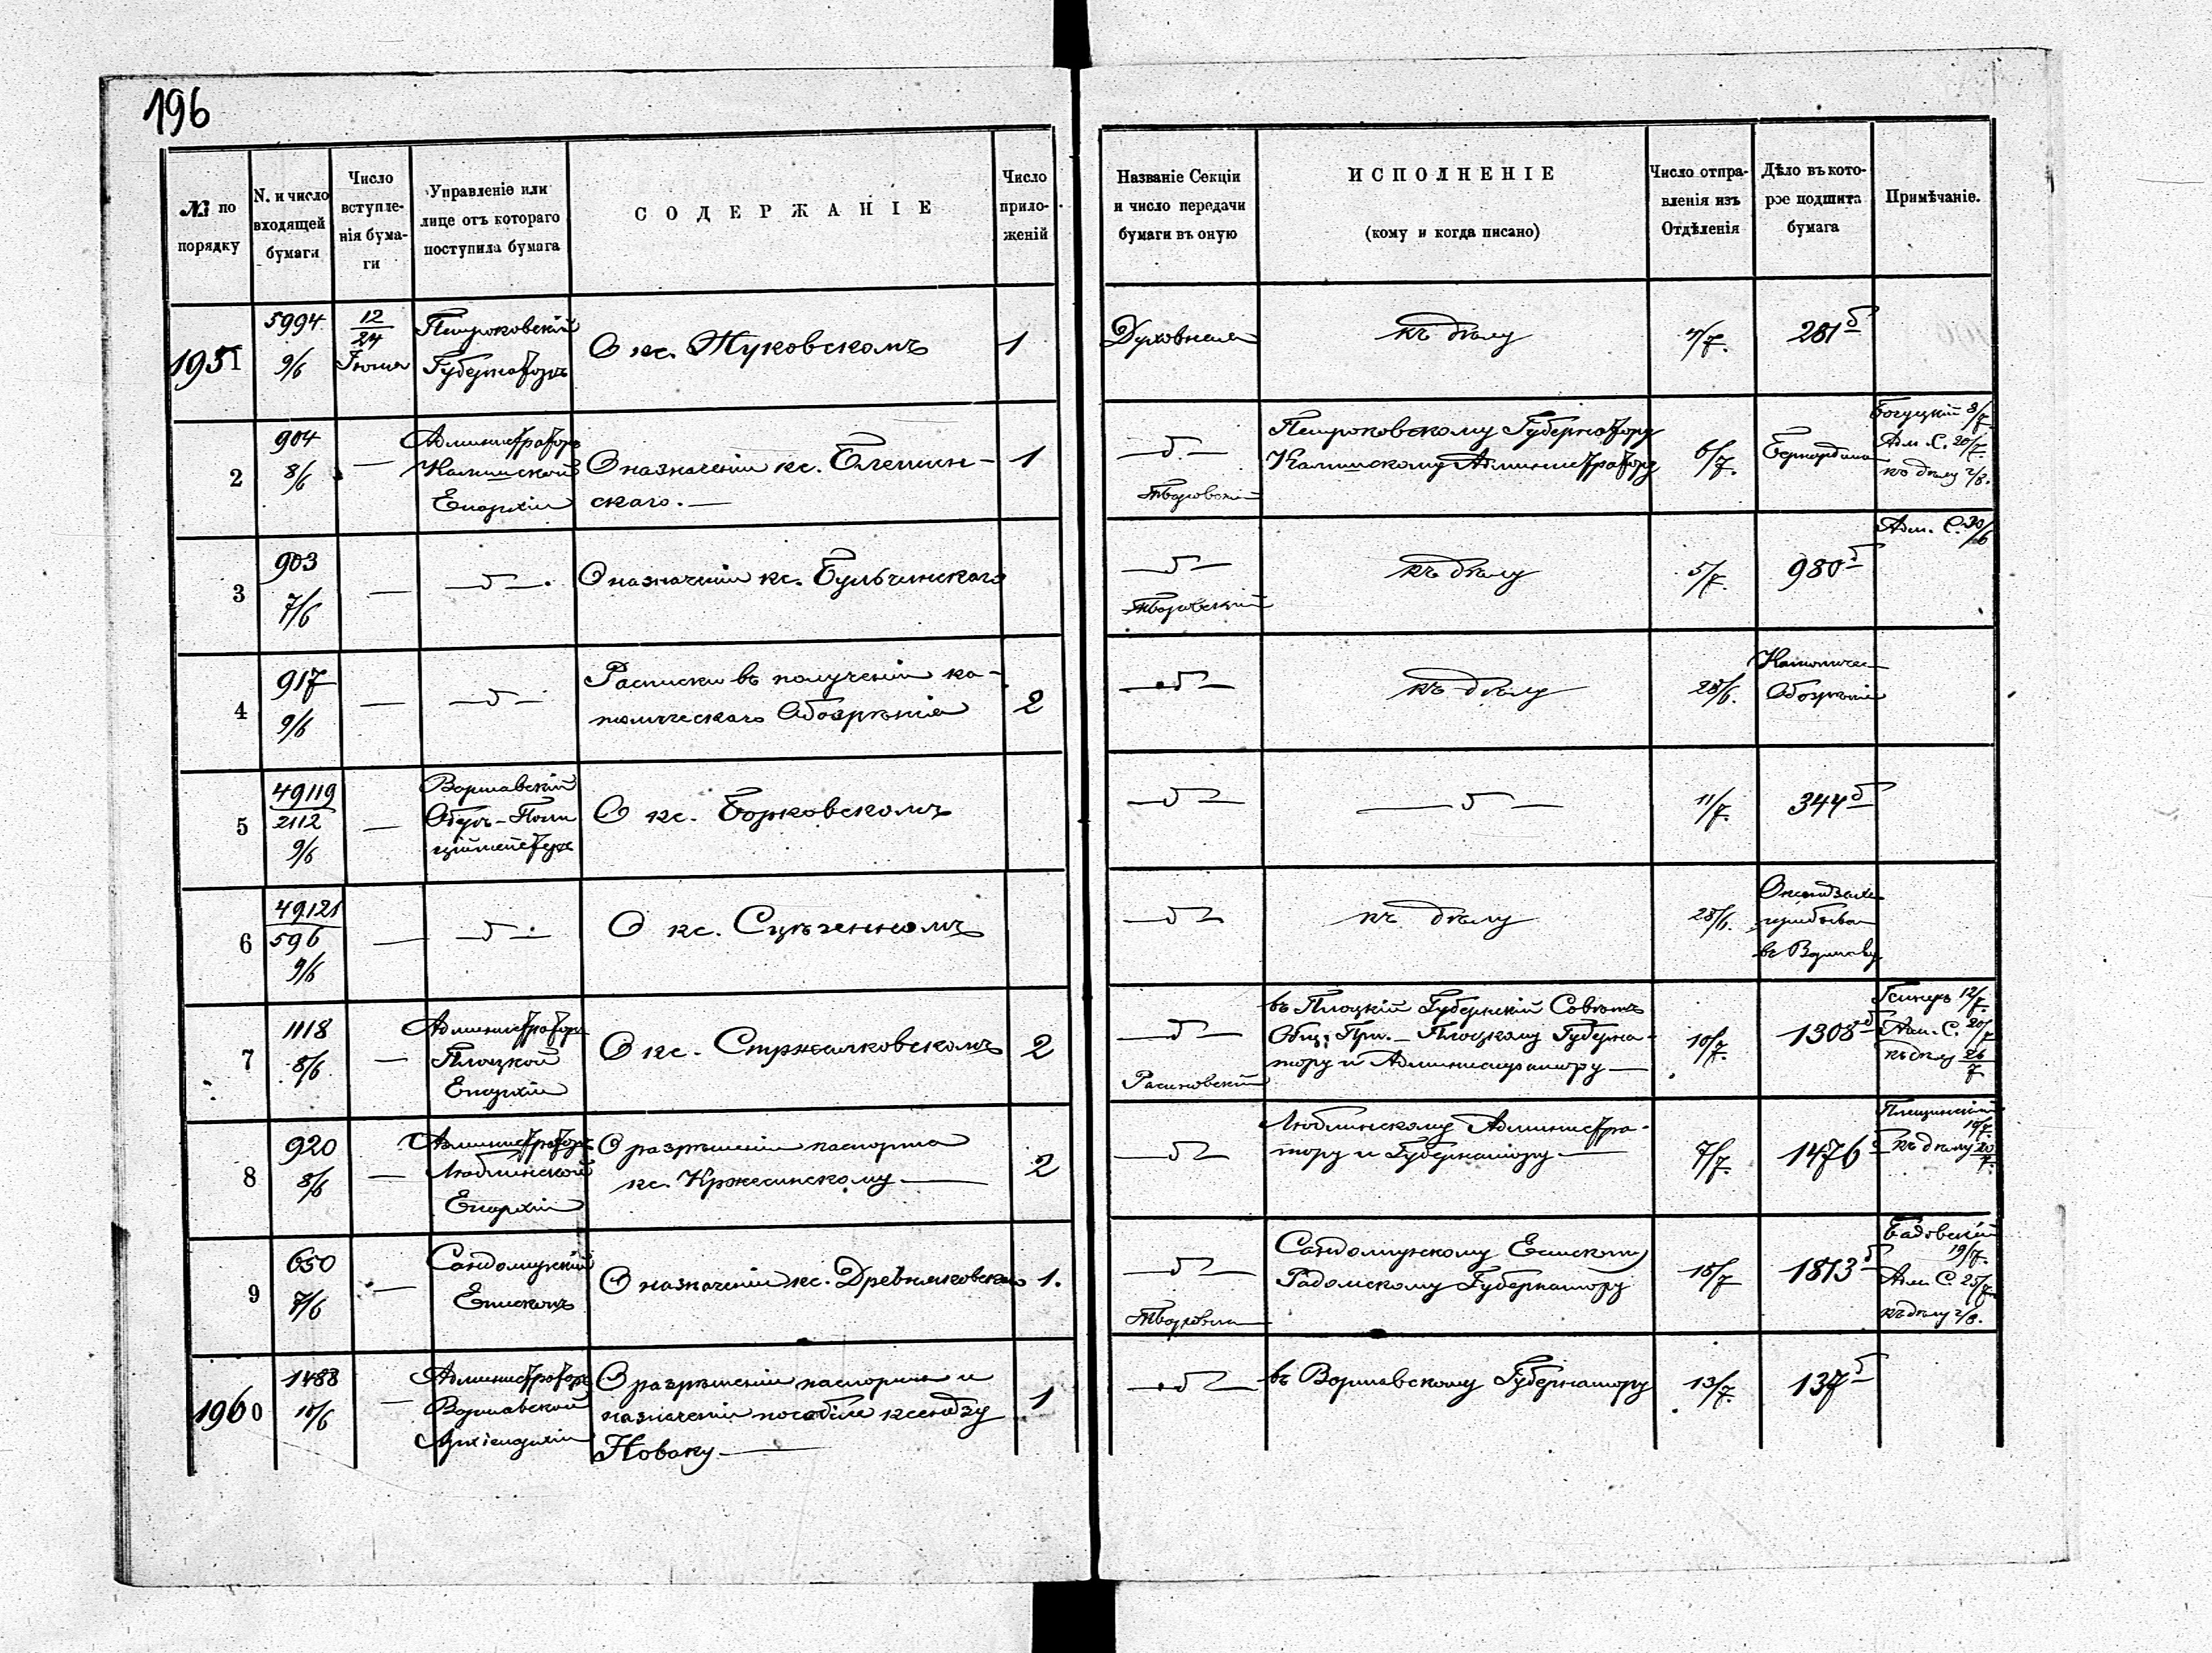 196
№ по порядку
N. и число входящей бумаги
Число вступленія бумаги
Управленіе или лице отъ котораго поступила бумага
СОДЕРЖАНІЕ
Число приложеній
Названіе Секціи и число передачи бумаги въ оную
ИСПОЛНЕНІЕ
(кому и когда писано)
Число отправленія изъ Отдѣленія
Дѣло въ которое подшита бумага
Примѣчаніе.
1951
5994
9/6
12/24 Іюня
Петроковскій
Губернаторъ
О кс. Жуковскомъ
1
Духовная
къ дѣлу
4/7.
281 б
2
904
8/6
—
Администраторъ
Калишской
Епархіи
О назначеніи кс. Блешин-
скаго. —
1
— д. —
Петроковскому Губернатору
Калишскому Администратору
6/7.
8/7
Адм. С. 20/7.
къ дѣлу 2/8.
3
903
7/6
—
— д — .
О назначеніи кс. Бульчинскаго
— д —
къ дѣлу
5/7.
980 б
Адм. С. 30/6
4
917
9/6
—
— д —
Расписки въ полученіи ка-
толическаго Обозрѣнія
2
— д —
къ дѣлу
28/6.
Католичес.
Обозрѣніе
5
49119
2112
9/6
—
Варшавскій
Оберъ-Поли
ціймейстеръ
О кс. Борковскомъ
— д —
— д —
11/7.
344 б
6
49121
596
9/6
—
— д —
О кс. Сцѣгенномъ
— д —
къ дѣлу
28/6.
въ Варшаву
7
1118
8/6
—
Администраторъ
Плоцкой
Епархіи
О кс. Стржалковскомъ
2
— д —
въ Плоцкій Губернскій Совѣтъ
Общ. При. — Плоцкому Губерна-
тору и Администратору —
10/7.
1308 б
12/7.
Адм. С. 20/7
къ дѣлу 26/7
8
920
8/6
—
Администраторъ
Люблинской
Епархіи
О разрѣшеніи паспорта
кс. Кржесинскому —
2
— д —
Люблинскому Администра-
тору и Губернатору —
7/7.
1476 б
къ дѣлу 20/7.
9
650
7/6
—
Сандомирскій
Епископъ
О назначеніи кс. Древняковска
1.
— д —
Сандомирскому Епископу
Радомскому Губернатору
15/7
1813 б
19/7.
Адм. С. 25/7.
къ дѣлу 2/8.
1960
1488
10/6
—
Администраторъ
Варшавской
Архіепархіи
О разрѣшеніи паспорта и
назначеніи пособія ксендзу
Новаку —
1
— д —
въ Варшавскому Губернатору
13/7.
137 б